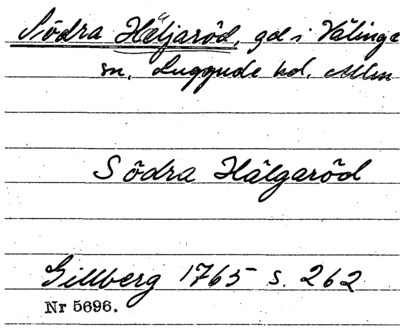 Södra Häljaröd, gd i Välinge
sn, Luggude hd. Mlm
Södra Hälgaröd
Gillberg 1765 s. 262
Nr 5696.